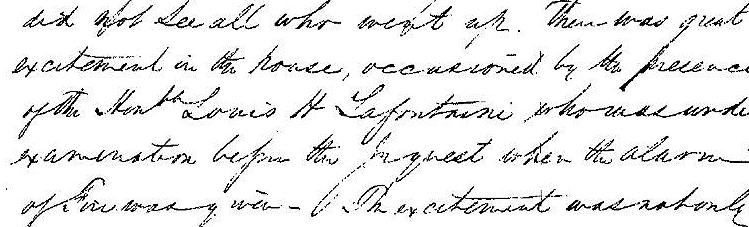 did not see all who went up. There was great
excitement in the house, occasioned by the presenc
of the Honble Louis H Lafontaine who was unde
examination before the Inquest when the alarm
of Fire was given - The excitement was not only